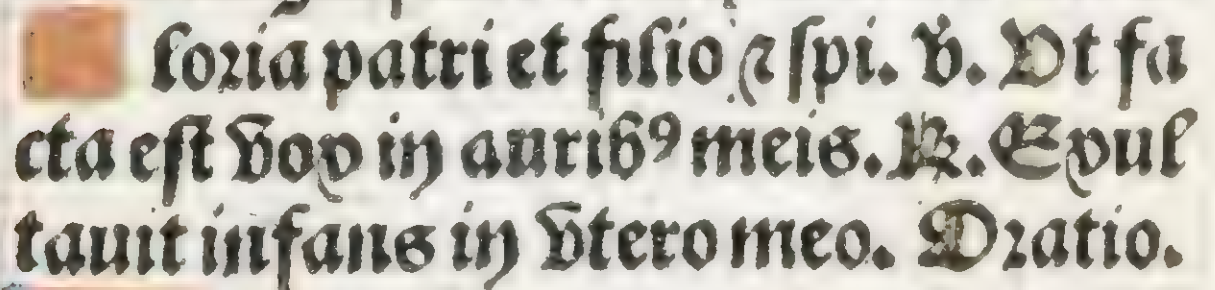 loꝛia patri et filio ⁊ ſpi. v̇. Ut fa
cta eſt vox in auribꝰ meis. ℞. Exul
tauit infans in vtero meo. Oꝛatio.